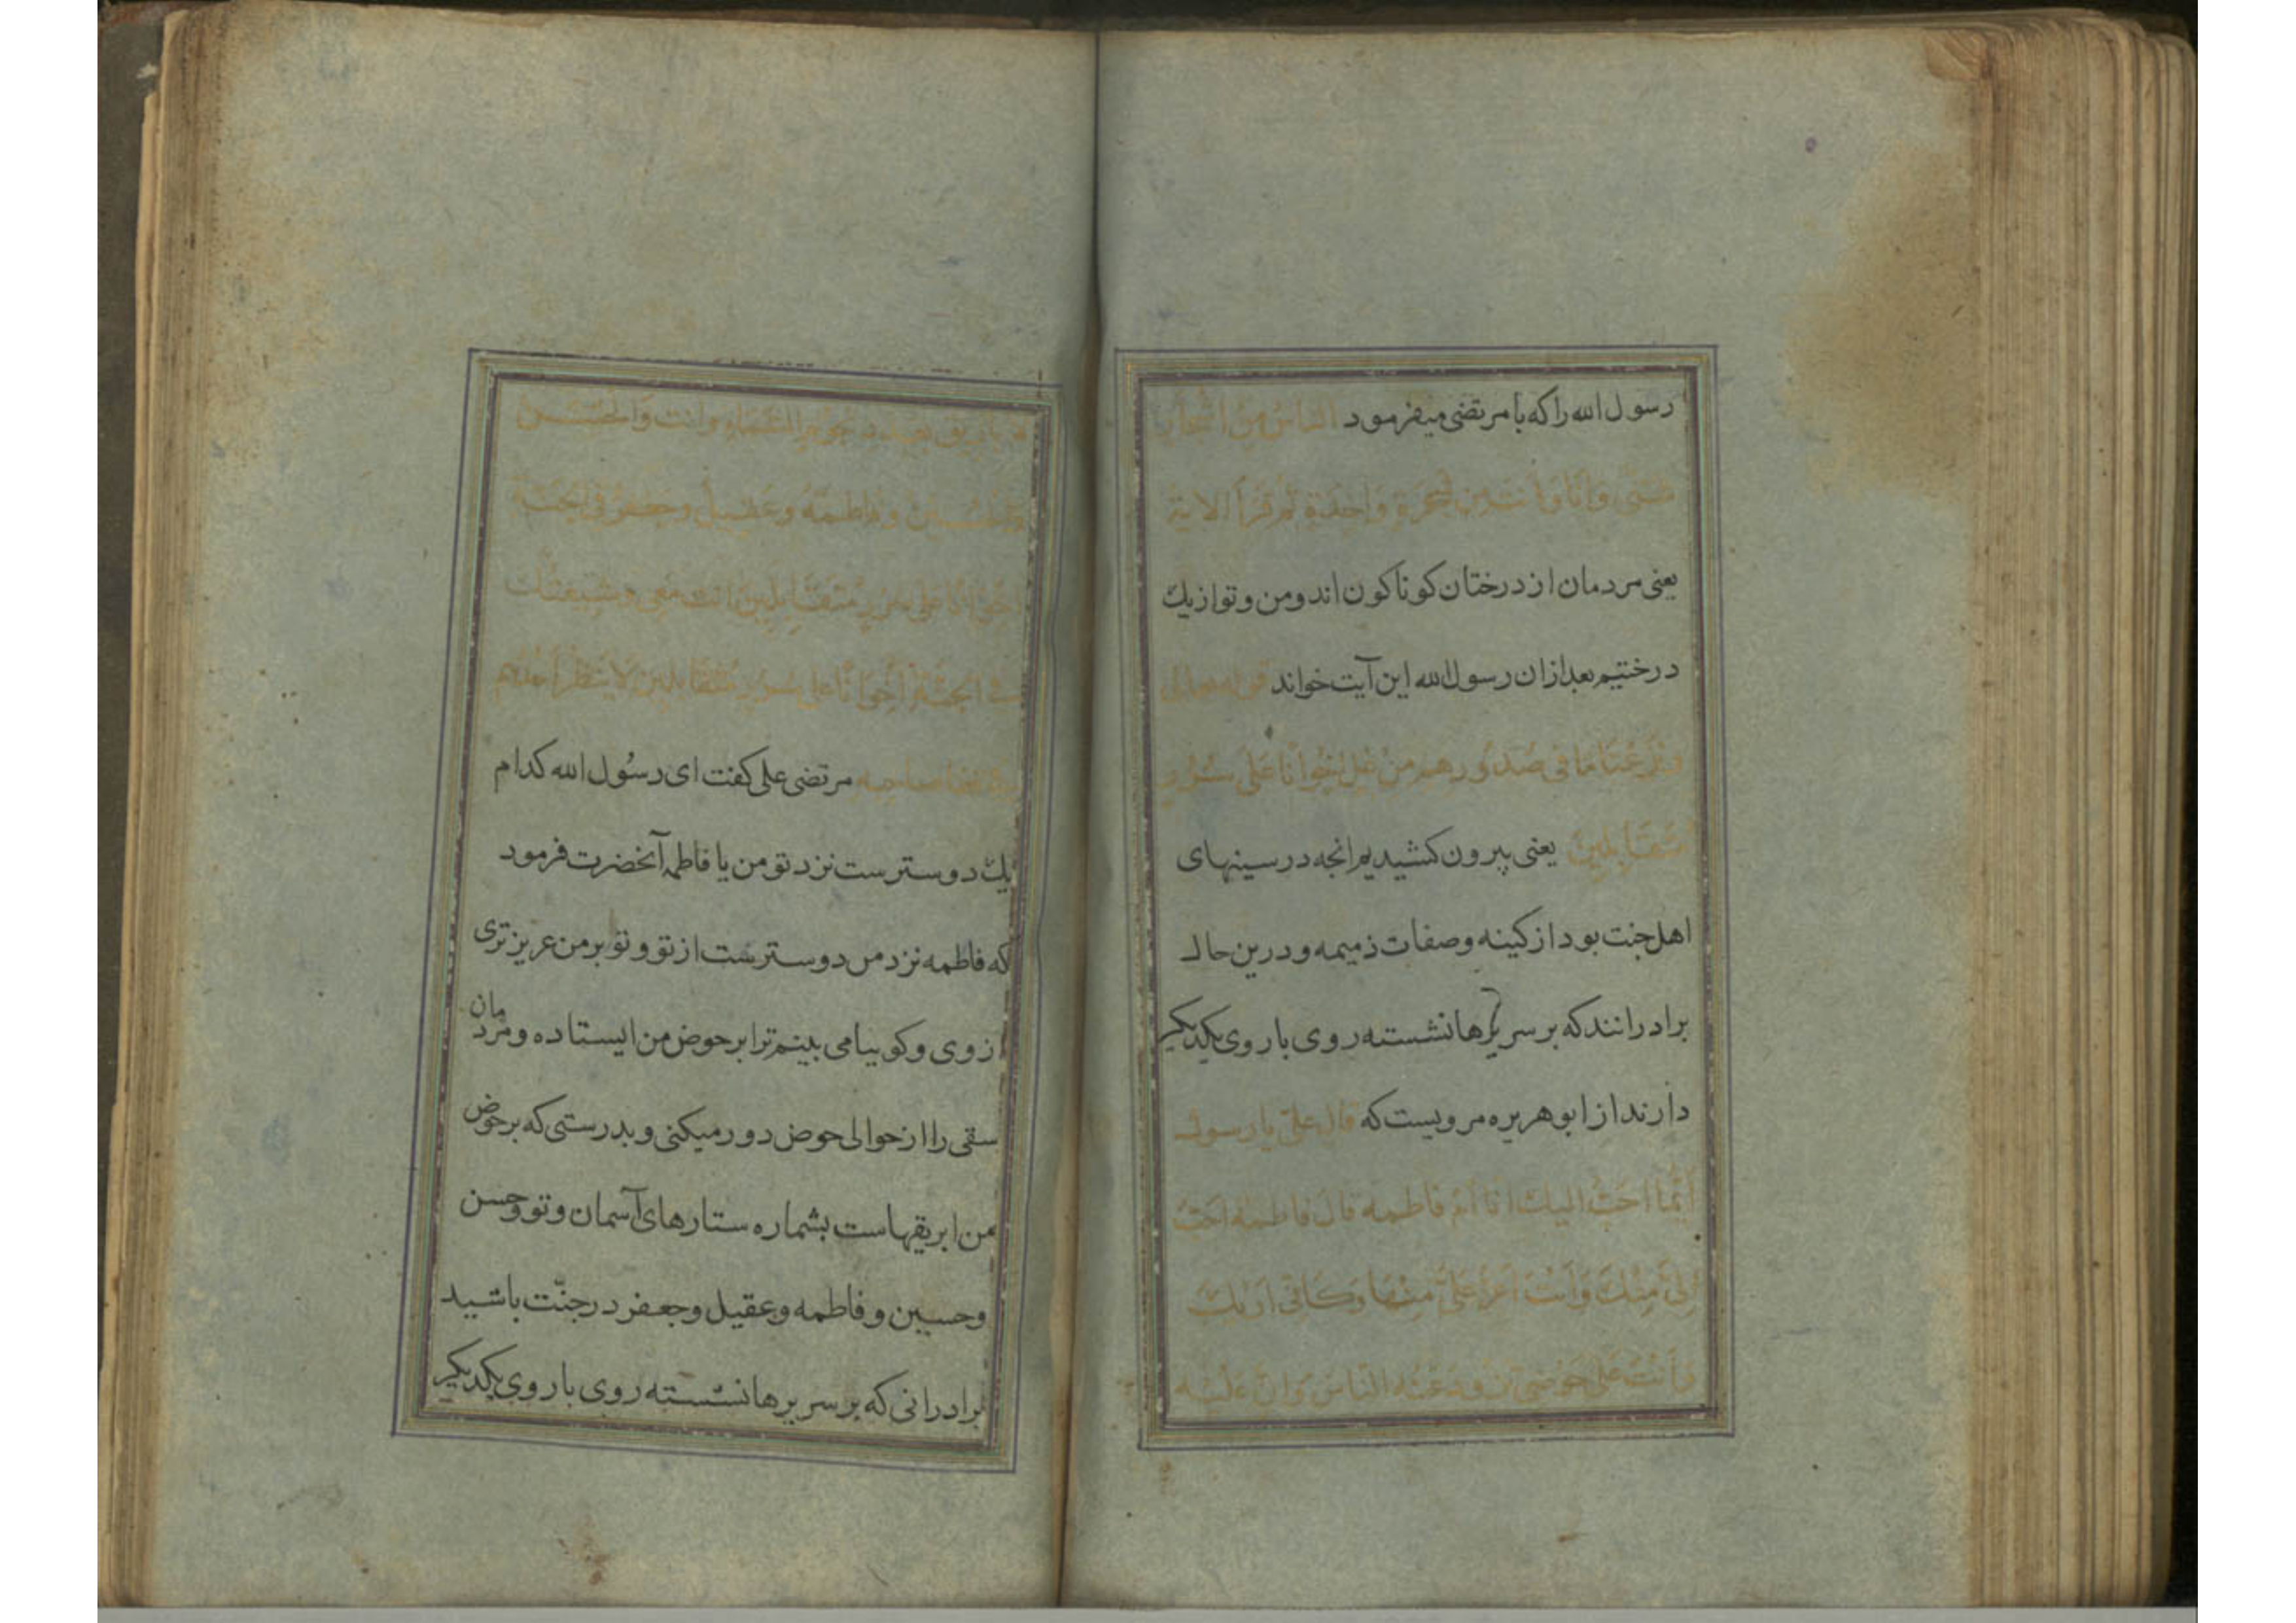 رسول الله را که با مرتضی میفرمود الناس من اشجار
شتی وانا وانت من شجرة واحدة ثم قرأ الایة
یعنی مردمان از درختان کوناکون اند و من و تو از یك
درختیم بعد ازان رسول الله این آیت خواند قوله تعالی
ونزعنا ما فی صدورهم من غل اخوانا علی سرر
متقابلین یعنی بیرون کشیدیم انجه در سینهای
اهل جنت بود از کینه و صفات ذمیمه و درین حال
برادرانند که بر سریرها نشسته روی با روی یکدیکر
دارند از ابوهریره مرویست که قال علی یا رسول
ایما احب الیك انا ام فاطمه قال فاطمه احب
الی منك وانت اعز علی منها وکانی اریك
وانت علی حوضی تذود عنه الناس وان علیه
عدد نجوم السماء وانت والحسن
والحسین وفاطمة وعقیل وجعفر فی الجنة
اخوانا علی سرر متقابلین انت معی وشیعتك
فی الجنة اخوانا علی سرر متقابلین لا ینظر احدهم
صاحبه مرتضی علی کفت ای رسول الله کدام
یك دوسترست نزد تو من یا فاطمه آنحضرت فرمود
که فاطمه نزد من دوسترست از تو و تو بر من عزیزتری
از وی و کوییا می بینم ترا بر حوض من ایستاده و مردمان
سقی را از حوالی حوض دور میکنی و بدرستی که بر حوض
من ابریقهاست بشماره ستارهای آسمان و تو و حسن
و حسین و فاطمه و عقیل و جعفر در جنّت باشید
برادرانی که بر سریرها نشسته روی با روی یکدیکر